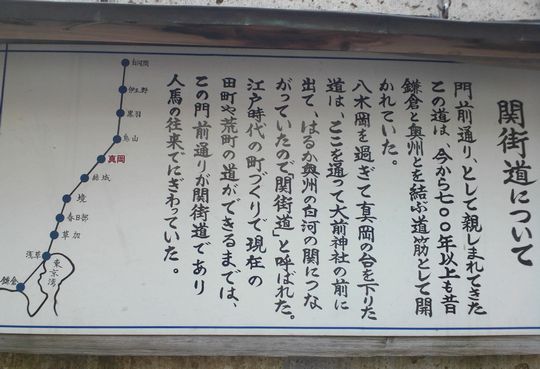 関街道について
門前通り、として親しまれてきた
この道は、今から七〇〇年以上も昔
鎌倉と奥州とを結ぶ道筋として開
かれていた。
八木岡を過ぎて真岡の台を下りた
道は、ここを通って大前神社の前に
出て、はるか奥州の白河の関につな
がっていたので「関街道」と呼ばれた。
江戸時代の町づくりで現在の
田町や荒町の道ができるまでは、
この門前通りが関街道であり
人馬の往来でにぎわっていた。
白河関
伊王野
黒羽
烏山
真岡
結城
境
春日部
草加
浅草
東京湾
鎌倉